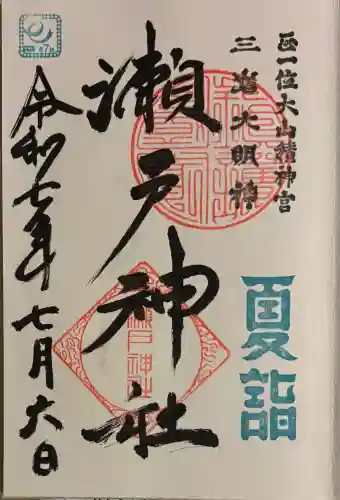 正一位大山積神宮
三嶌大明神
夏詣
瀬戸神社
瀬戸神社
令和七年七月六日